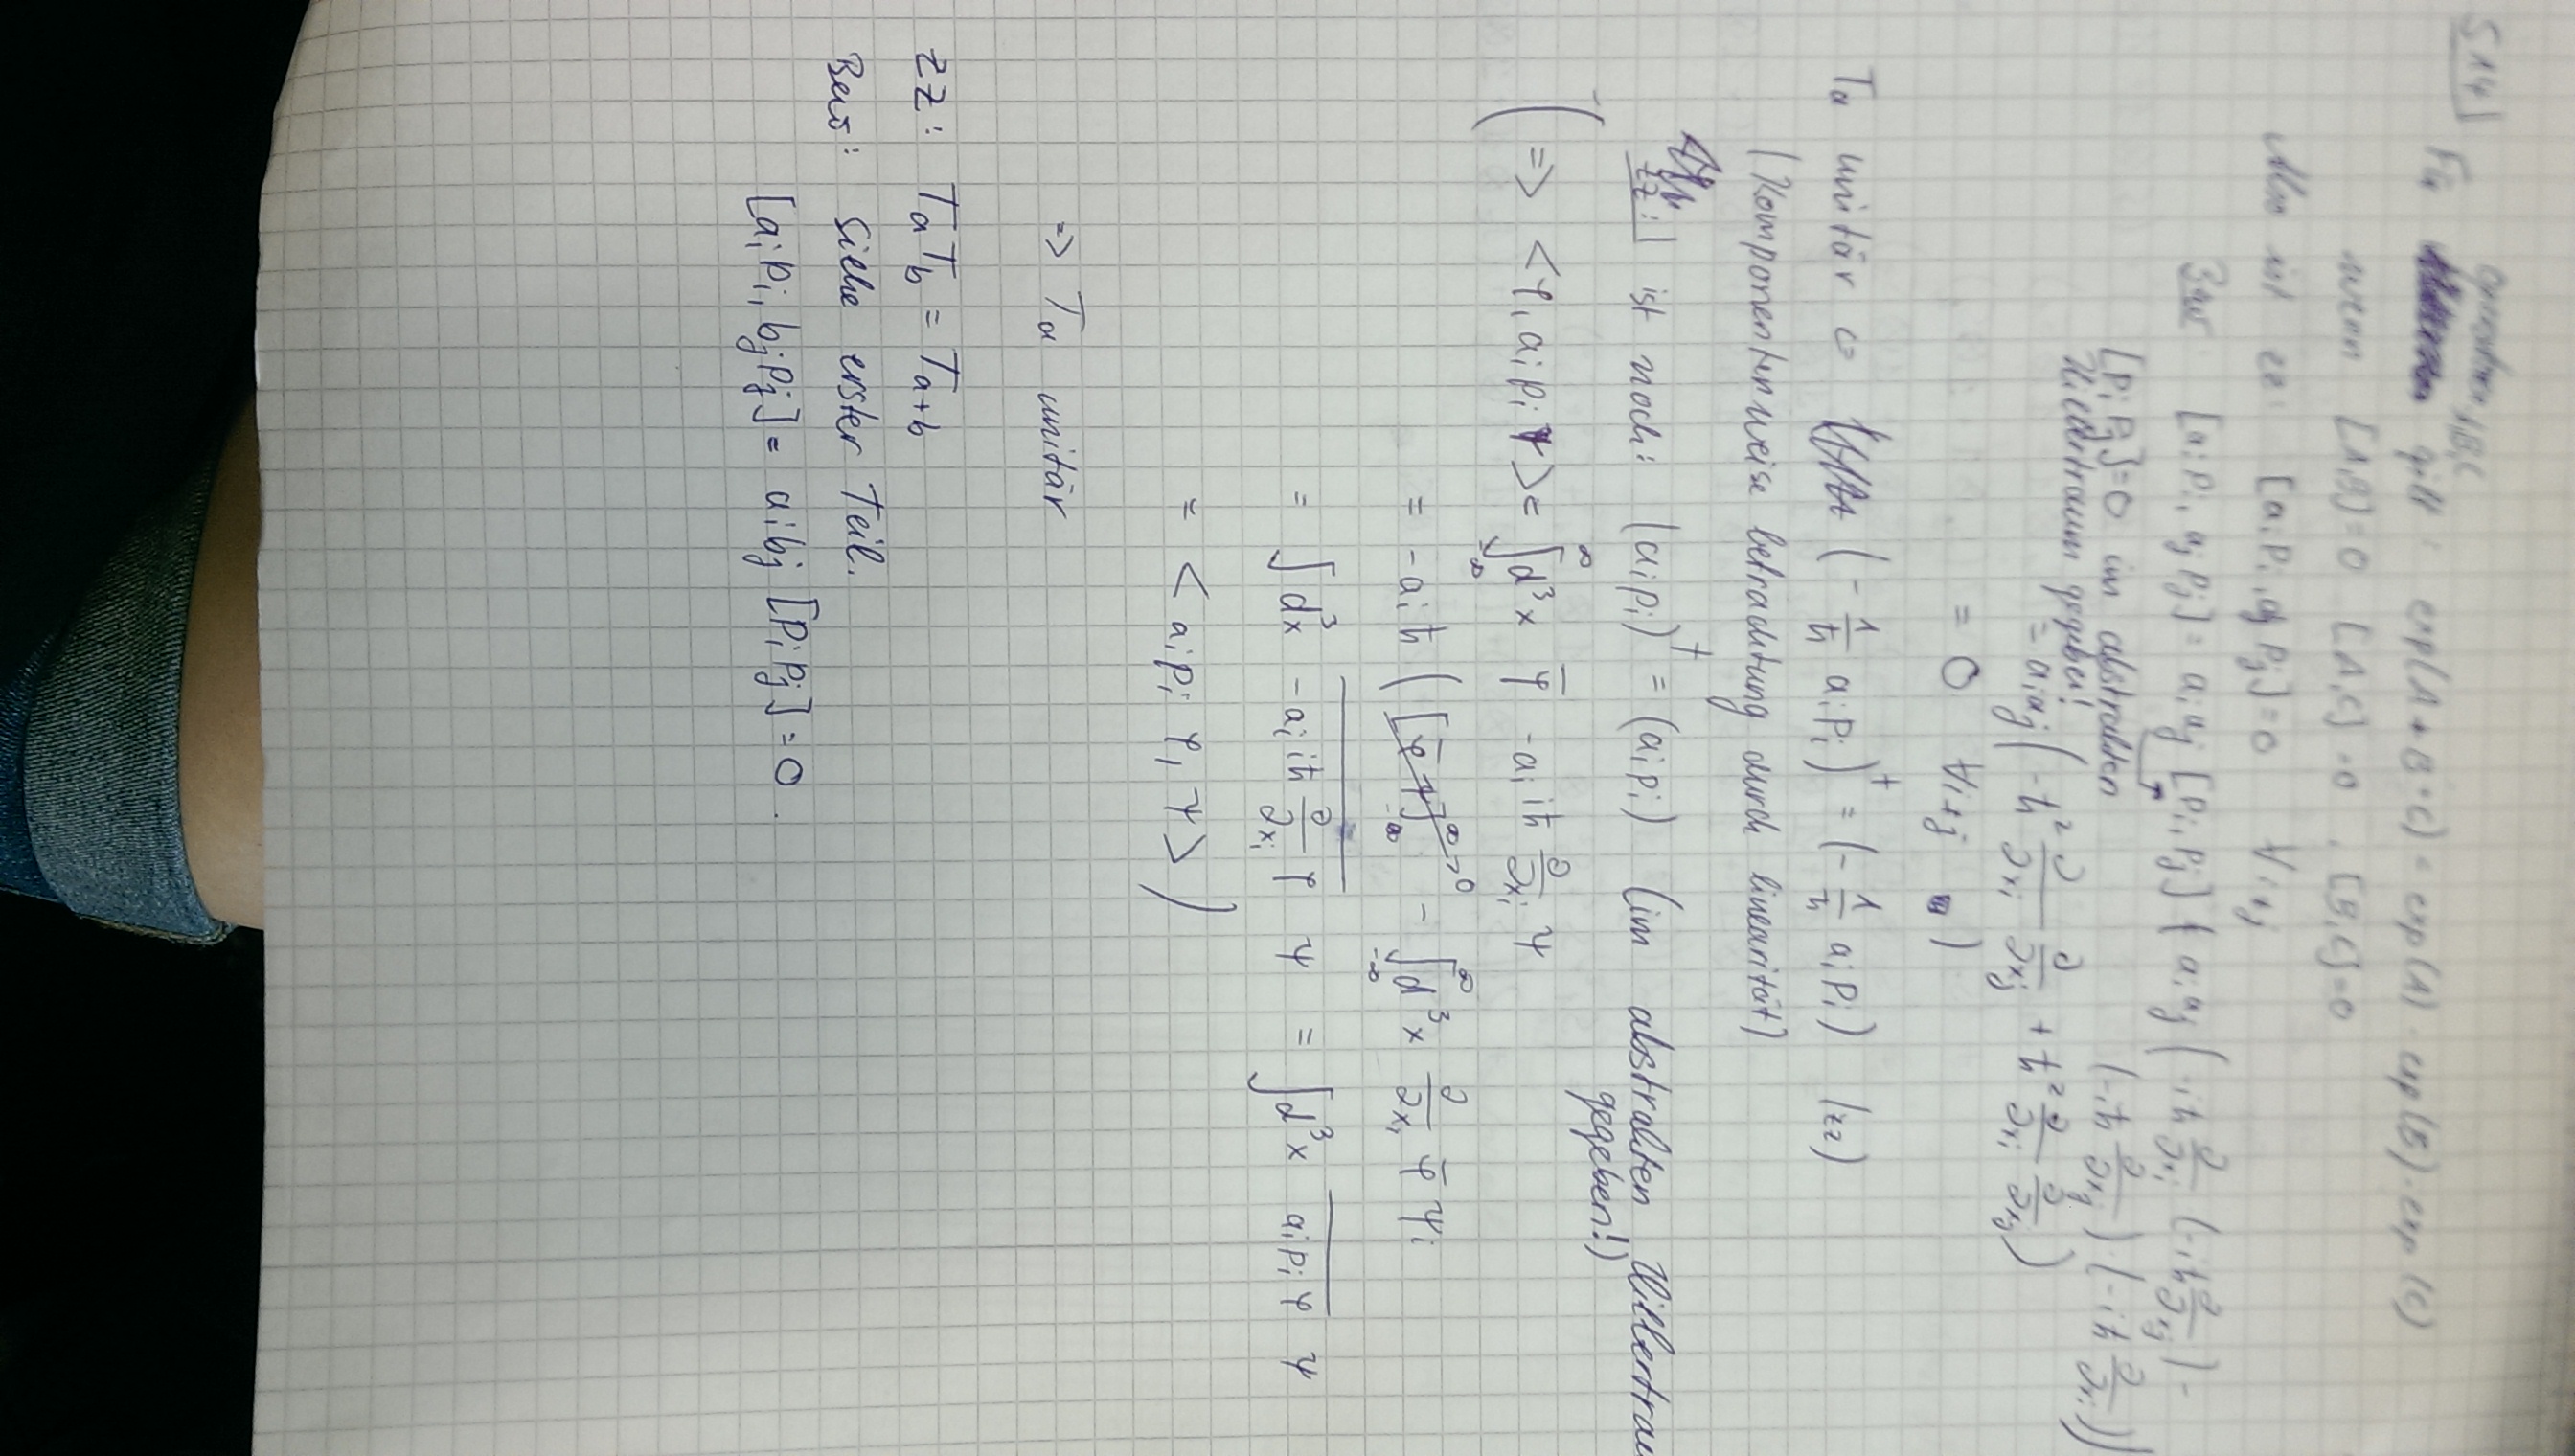 S14
Operatoren A,B,C
Für gilt: exp(A+B+C) = exp(A) · exp(B) · exp(C)
wenn [A,B]=0 [A,C]=0, [B,C]=0
Also ist zz: [aᵢPᵢ, aⱼPⱼ]=0 ∀i≠j
Bew [aᵢPᵢ, aⱼPⱼ] = aᵢaⱼ [Pᵢ,Pⱼ] ( aᵢaⱼ ( -iħ ∂/∂xᵢ (-iħ ∂/∂xⱼ) -
(-iħ ∂/∂xⱼ) (-iħ ∂/∂xᵢ))
[Pᵢ Pⱼ]=0 im abstrakten
Hilbertraum gegeben!
= aᵢaⱼ ( -ħ² ∂/∂xᵢ ∂/∂xⱼ + ħ² ∂/∂xᵢ ∂/∂xⱼ )
= 0 ∀i≠j )
Ta unitär (- 1/ħ aᵢPᵢ)† = (- 1/ħ aᵢPᵢ) (zz)
(Komponentenweise betrachtung durch linearität)
zz: ist noch: (aᵢpᵢ)† = (aᵢpᵢ) (im abstrakten Hilbertrau
gegeben!)
( => <φ, aᵢpᵢ ψ> = ∫_{-∞}^{∞} d³x φ̅ -aᵢ iħ ∂/∂xᵢ ψ
= -aᵢħ ( [φ̅ ψ]_{-∞}^{∞} →0 - ∫_{-∞}^{∞} d³x ∂/∂xᵢ φ̅ ψ
= ∫ d³x -aᵢ iħ ∂/∂xᵢ φ ψ = ∫ d³x aᵢpᵢ φ ψ
= < aᵢpᵢ φ, ψ> )
=> Ta unitär
ZZ: Ta Tb = Ta+b
Bew: Siehe erster Teil.
[aᵢpᵢ, bⱼpⱼ] = aᵢbⱼ [Pᵢ Pⱼ] = 0.